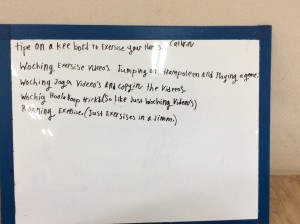 tipe on a kee bord to Exersise your Hands. Catlirin
Woching Exersise Videos. Jumping on trampoleen and Playing a game.
Woching Joga Video's and copyin the Videos.
Wochig Hoola Hoop tricks (So like Just Woching Video's)
Running Exersise. (Just Exersises in a Jimm.)